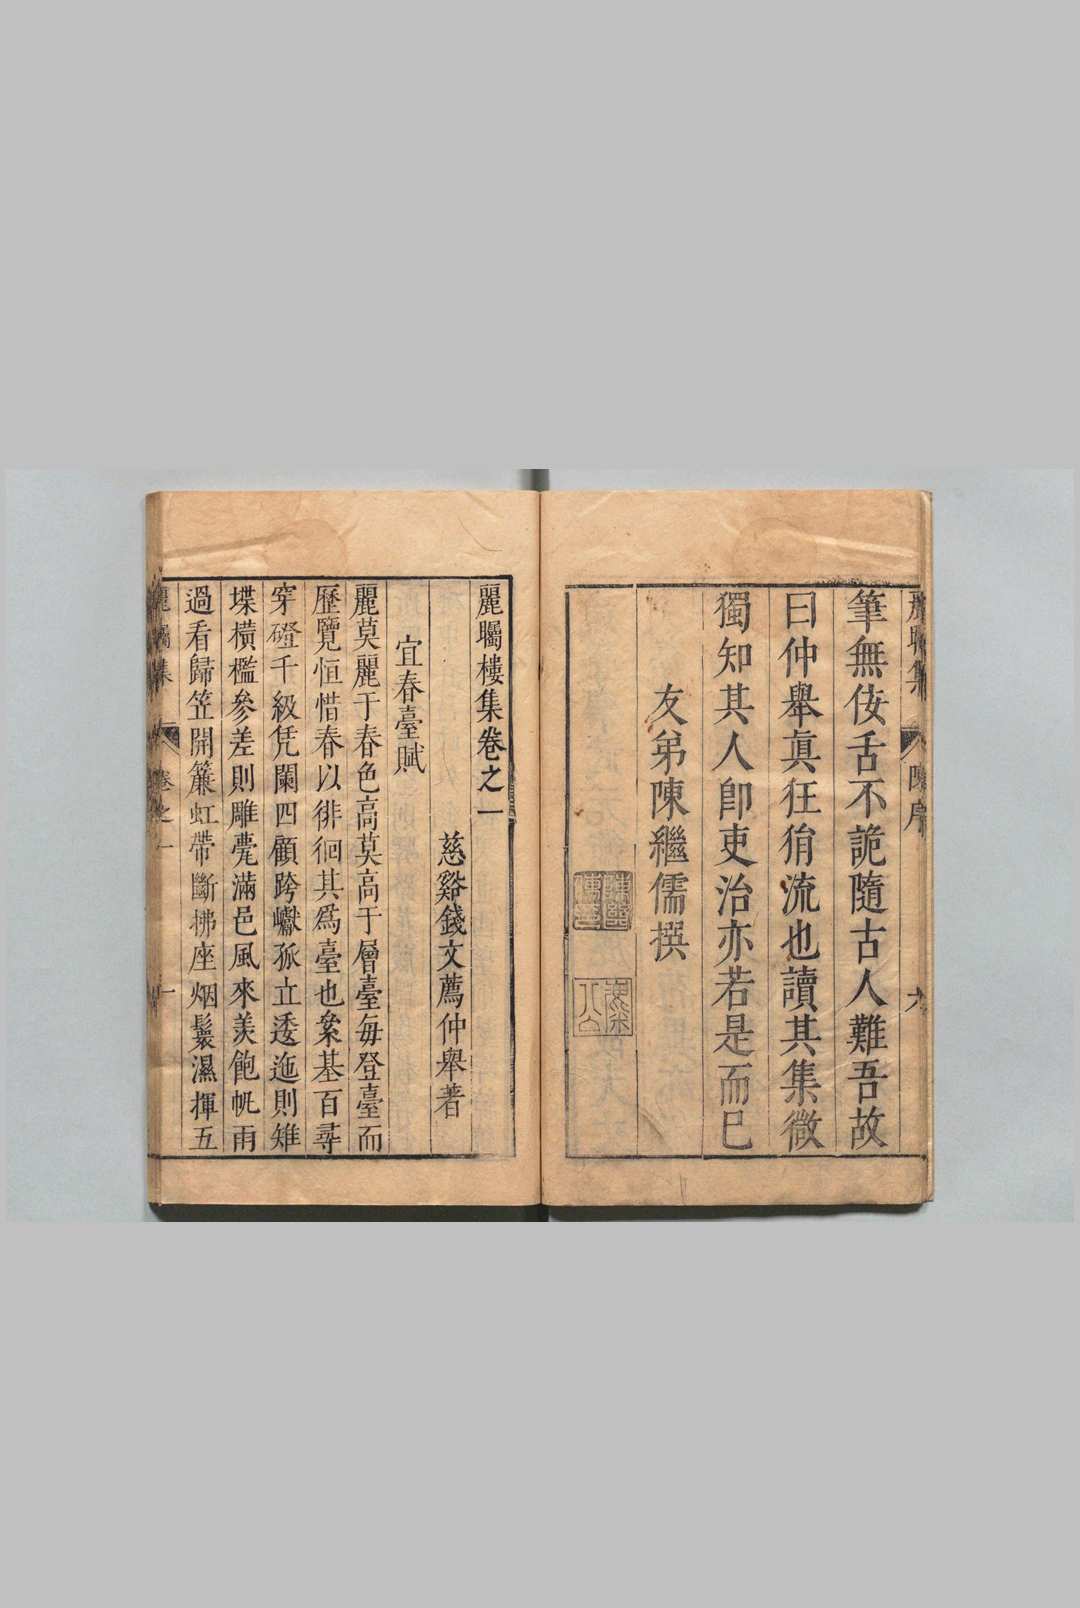 筆無佞舌不詭隨古人難吾故
曰仲舉眞狂狷流也讀其集微
獨知其人卽吏治亦若是而已
友弟陳繼儒撰
麗矚樓集卷之一
慈谿錢文薦仲舉著
宜春臺賦
麗莫麗于春色高莫高于層臺每登臺而
歷覽恒惜春以徘徊其爲臺也絫基百尋
穿磴千級凭闌四顧跨巘孤立逶迤則雉
堞橫檻參差則雕甍滿邑風來羨飽帆雨
過看歸笠開簾虹帶斷拂座烟鬟濕揮五